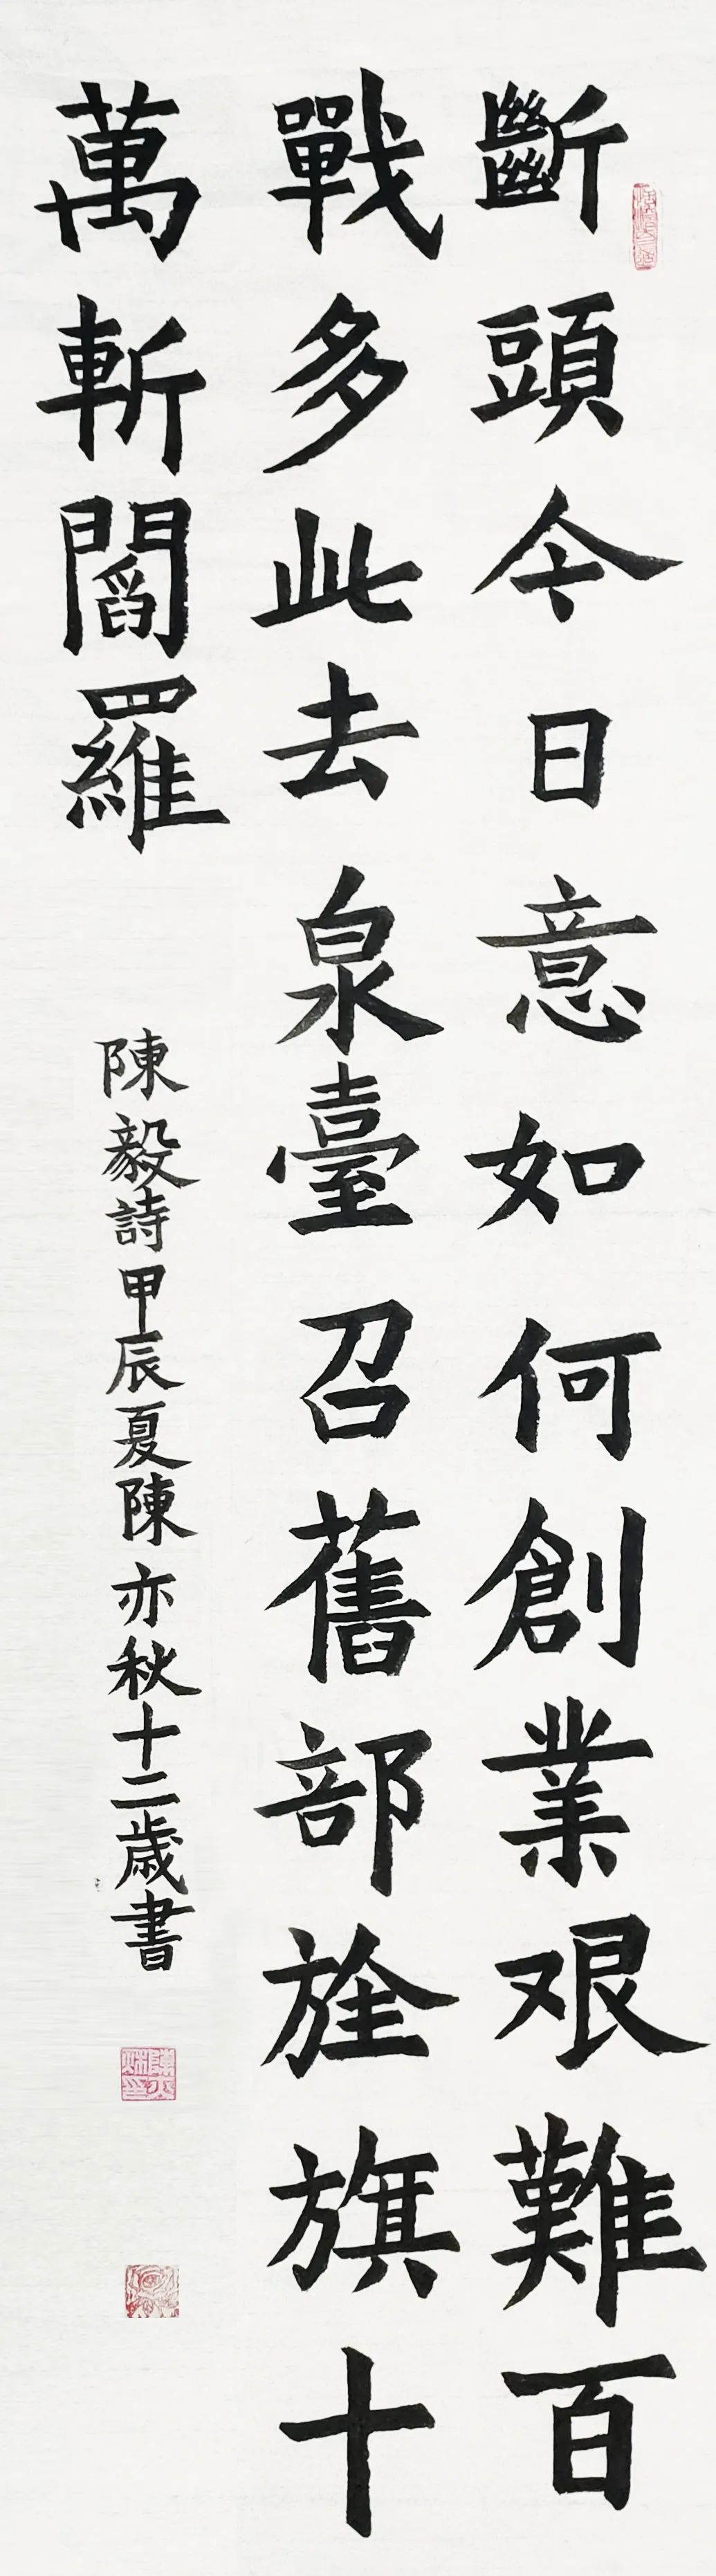 斷頭今日意如何創業艱難百
戰多此去泉臺召舊部旌旗十
萬斬閻羅
陳毅詩甲辰夏陳亦秋十二歲書